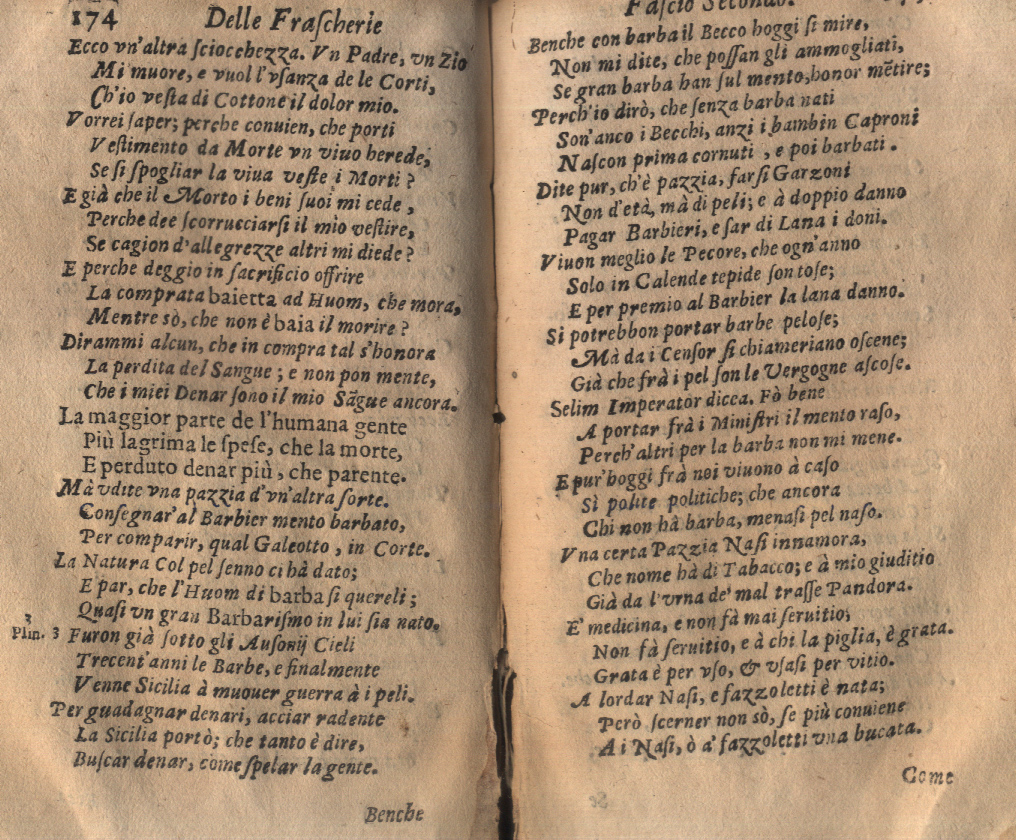 174 Delle Fraſcherie
Ecco vn'altra ſciocchezza. Vn Padre, vn Zio
Mi muore, e vuol l'vſanza de le Corti,
Ch'io veſta di Cottone il dolor mio.
Vorrei ſaper; perche conuien, che porti
Veſtimento da Morte vn viuo herede,
Se ſi ſpogliar la viua veſte i Morti?
E già che il Morto i beni ſuoi mi cede,
Perche dee ſcorrucciarſi il mio veſtire,
Se cagion d'allegrezze altri mi diede?
E perche deggio in ſacrificio offrire
La comprata baietta ad Huom, che mora,
Mentre sò, che non è baia il morire?
Dirammi alcun, che in compra tal s'honora
La perdita del Sangue; e non pon mente,
Che i miei Denar ſono il mio Sãgue ancora.
La maggior parte de l'humana gente
Più lagrima le ſpeſe, che la morte,
E perduto denar più, che parente.
Mà vdite vna pazzia d'vn'altra ſorte.
Conſegnar'al Barbier mento barbato,
Per comparir, qual Galeotto, in Corte.
La Natura Col pel ſenno ci hà dato;
E par, che l'Huom di barba ſi quereli;
Quaſi vn gran Barbariſmo in lui ſia nato.
3
Plin. 3 Furon già ſotto gli Auſonij Cieli
Trecent'anni le Barbe, e finalmente
Venne Sicilia à muouer guerra à i peli.
Per guadagnar denari, acciar radente
La Sicilia portò; che tanto è dire,
Buſcar denar, come ſpelar la gente.
Benche
Faſcio Secondo.
Benche con barba il Becco hoggi ſi mire,
Non mi dite, che poſſan gli ammogliati,
Se gran barba han ſul mento, honor mẽtire;
Perch'io dirò, che ſenza barba nati
Son'anco i Becchi, anzi i bambin Caproni
Naſcon prima cornuti, e poi barbati.
Dite pur, ch'è pazzia, farſi Garzoni
Non d'età, mà di peli; e à doppio danno
Pagar Barbieri, e far di Lana i doni.
Viuon meglio le Pecore, che ogn'anno
Solo in Calende tepide ſon toſe;
E per premio al Barbier la lana danno.
Si potrebbon portar barbe peloſe;
Mà da i Cenſor ſi chiameriano oſcene;
Già che frà i pel ſon le Vergogne aſcoſe.
Selim Imperator dicea. Fò bene
A portar frà i Miniſtri il mento raſo,
Perch'altri per la barba non mi mene.
E pur'hoggi frà noi viuono à caſo
Sì polite politiche; che ancora
Chi non hà barba, menaſi pel naſo.
Vna certa Pazzia Naſi innamora,
Che nome hà di Tabacco; e à mio giuditio
Già da l'vrna de' mal traſſe Pandora.
E' medicina, e non fà mai ſeruitio;
Non fà ſeruitio, e à chi la piglia, è grata.
Grata è per vſo, & vſaſi per vitio.
A lordar Naſi, e fazzoletti è nata;
Però ſcerner non sò, ſe più conuiene
A i Naſi, ò a' fazzoletti vna bucata.
Come